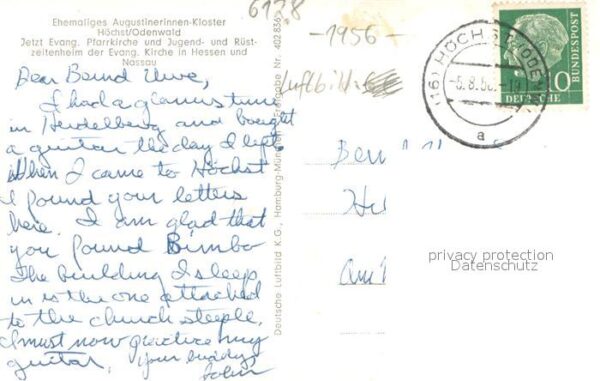 6178
Ehemaliges Augustinerinnen-Kloster
Höchst/Odenwald
Jetzt Evang. Pfarrkirche und Jugend- und Rüst-
zeitenheim der Evang. Kirche in Hessen und
Nassau
Dear Bernd Uwe,
I had a glamorous time
in Heidelberg and bought
a guitar the day I left
When I came to Höchst
I found your letters
here. I am glad that
you found Bimbo
The building I sleep
in is the one attached
to the church steeple.
I must now practice my
guitar, Your buddy
John
Deutsche Luftbild K.G., Hamburg-München Freigabe Nr. 402.8365
-1956-
Luftbild
(16) HÖCHST (ODENW)
-5.8.56.-19
a
DEUTSCHE
BUNDESPOST
10
privacy protection
Datenschutz